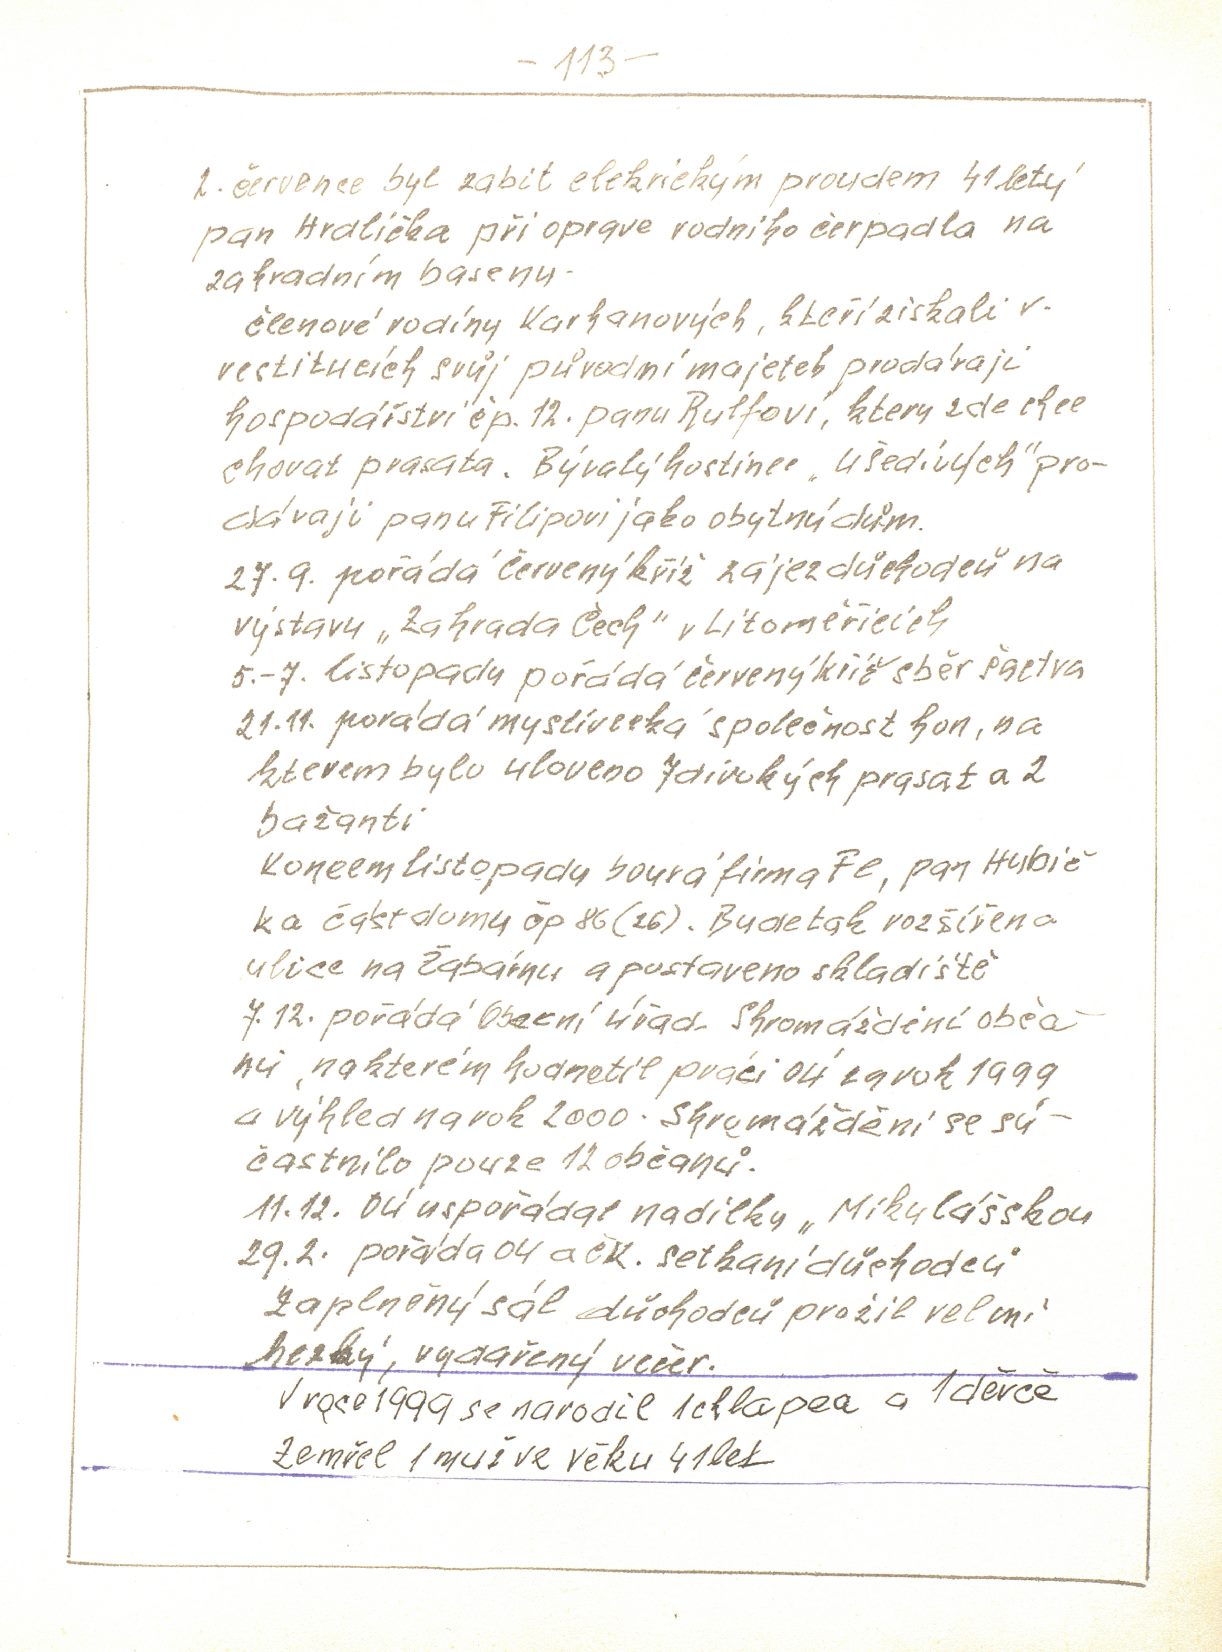 - 113 -
2. července byl zabit elekrickým proudem 41 letý
pan Hrdlička při oprave vodního čerpadla na
zahradním basenu.
členové rodiny Karhanových, kteří získali v
restitucích svůj původní majetek prodávají
hospodářství čp. 12. panu Rulfovi, ktery zde chce
chovat prasata. Bývalý hostinec „U Šedivých" pro-
dávají panu Filipovi jako obytný dům.
27. 9. pořádá Červený kříž zájezd důchodců na
výstavu „Zahrada Čech" v Litoměřicích
5.-7. listopadu pořádá červený kříž sběr šactva
21.11. porádá myslivecká společnost hon, na
kterem bylo uloveno 7 divokých prasat a 2
bažanti
Koncem listopadu bourá firma Fe, pan Hubič
ka část domu čp 86 (26). Bude tak rozšířena
ulice na Žabárnu a postaveno skladiště
7. 12. pořádá Obecní úřad Shromáždění obča-
nů, na kterém hodnotil práci OÚ za rok 1999
a výhled na rok 2000. Shromáždění se sú-
častnilo pouze 12 občanů.
11.12. OÚ uspořádal nadílku „Mikulášskou
29.2. pořáda OÚ a ČK. setkaní důchodců
Zaplněný sál důchodců prožil velmi
hezký, vydařený večer.
V roce 1999 se narodil 1 chlapec a 1 děvče
Zemřel 1 muž ve věku 41 let